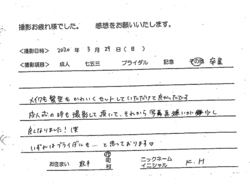 撮影お疲れ様でした。 感想をお願いいたします。
<撮影日時> 2020 年 3 月 29 日 ( 日 )
<撮影項目> 成人 七五三 ブライダル 記念 その他 卒業
メイクも髪型もかわいくセットしていただけて良かったです
成人式の時も撮影して頂いて、それから写真嫌いが少し
良くなりました!笑
いずれはブライダルも…と思っております
お住まい 市 町 村 ニックネーム イニシャル K.H